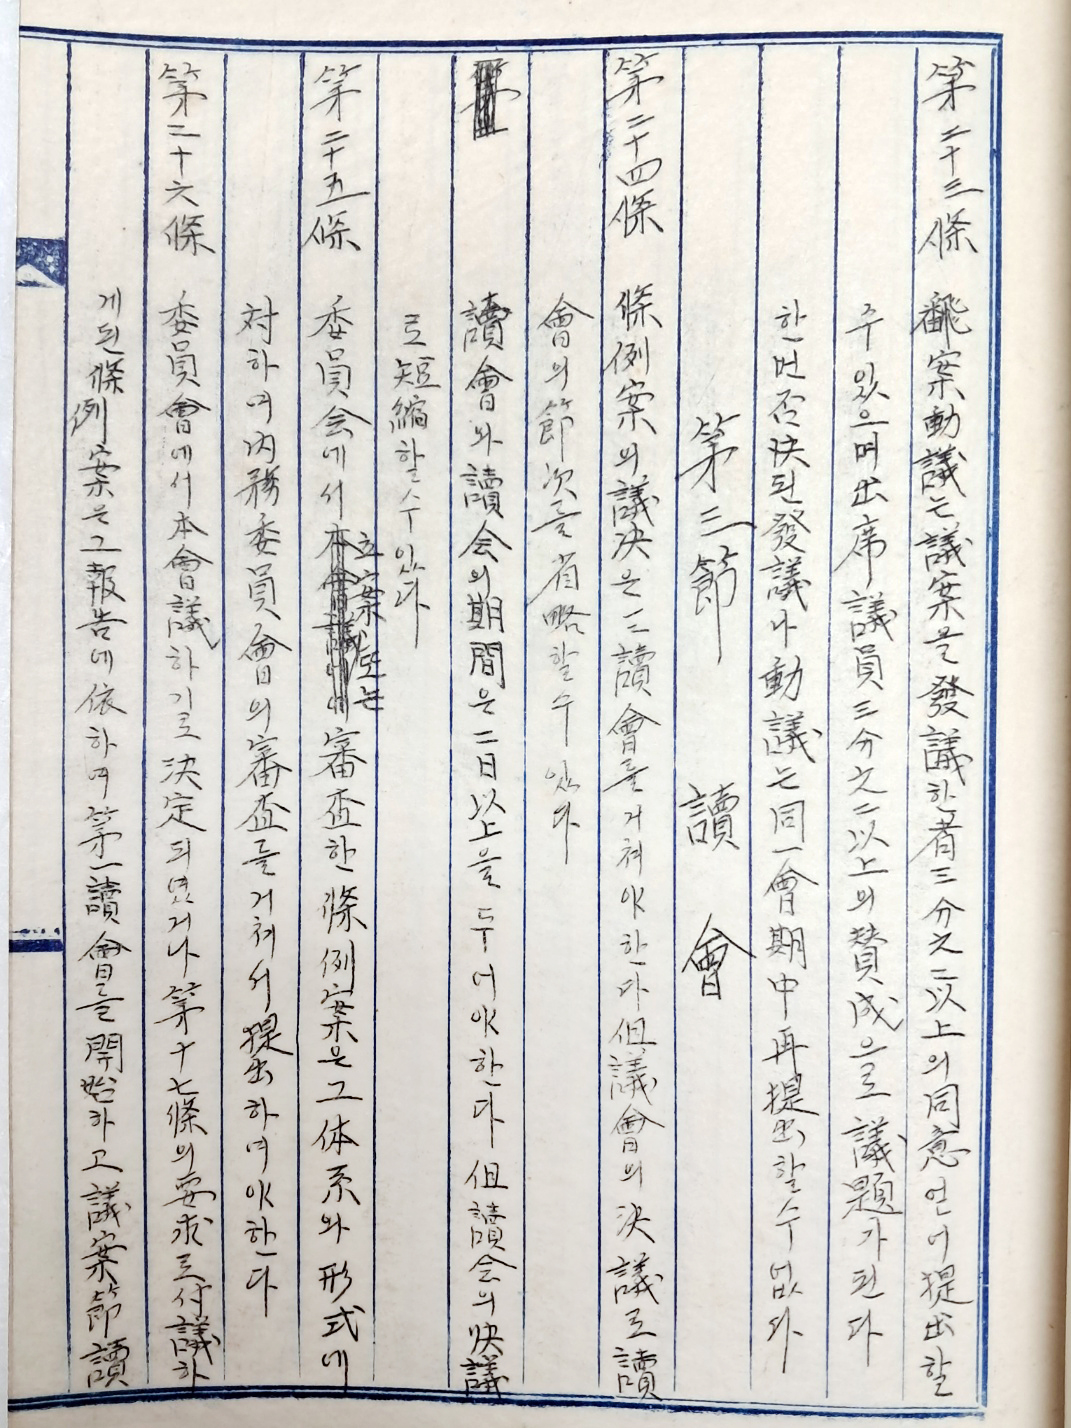 第二十三條 飜案動議는 議案을 發議한 者 三分之二以上의 同意 얻어 提出할
수 있으며 出席議員 三分之二以上의 賛成으로 議題가 된다
한번 否決된 發議나 動議는 同一會期中 再提出할 수 없다
第三節 讀會
第二十四條 條例案의 議決은 三讀會를 거쳐야 한다 但 議會의 決議로 讀
會의 節次를 省略할 수 있다
讀會와 讀会의 期間은 二日以上을 두어야 한다 但 讀会의 決議
로 短縮할 수 있다
第二十五條 委員会에서 立案 또는 審査한 條例案은 그 体系와 形式에
対하여 內務委員會의 審査를 거쳐서 提出하여야 한다
第二十六條 委員會에서 本會議하기로 決定되였거나 第十七條의 要求로 付議하
게 된 條例案은 그 報告에 依하여 第一讀會를 開始하고 議案節讀